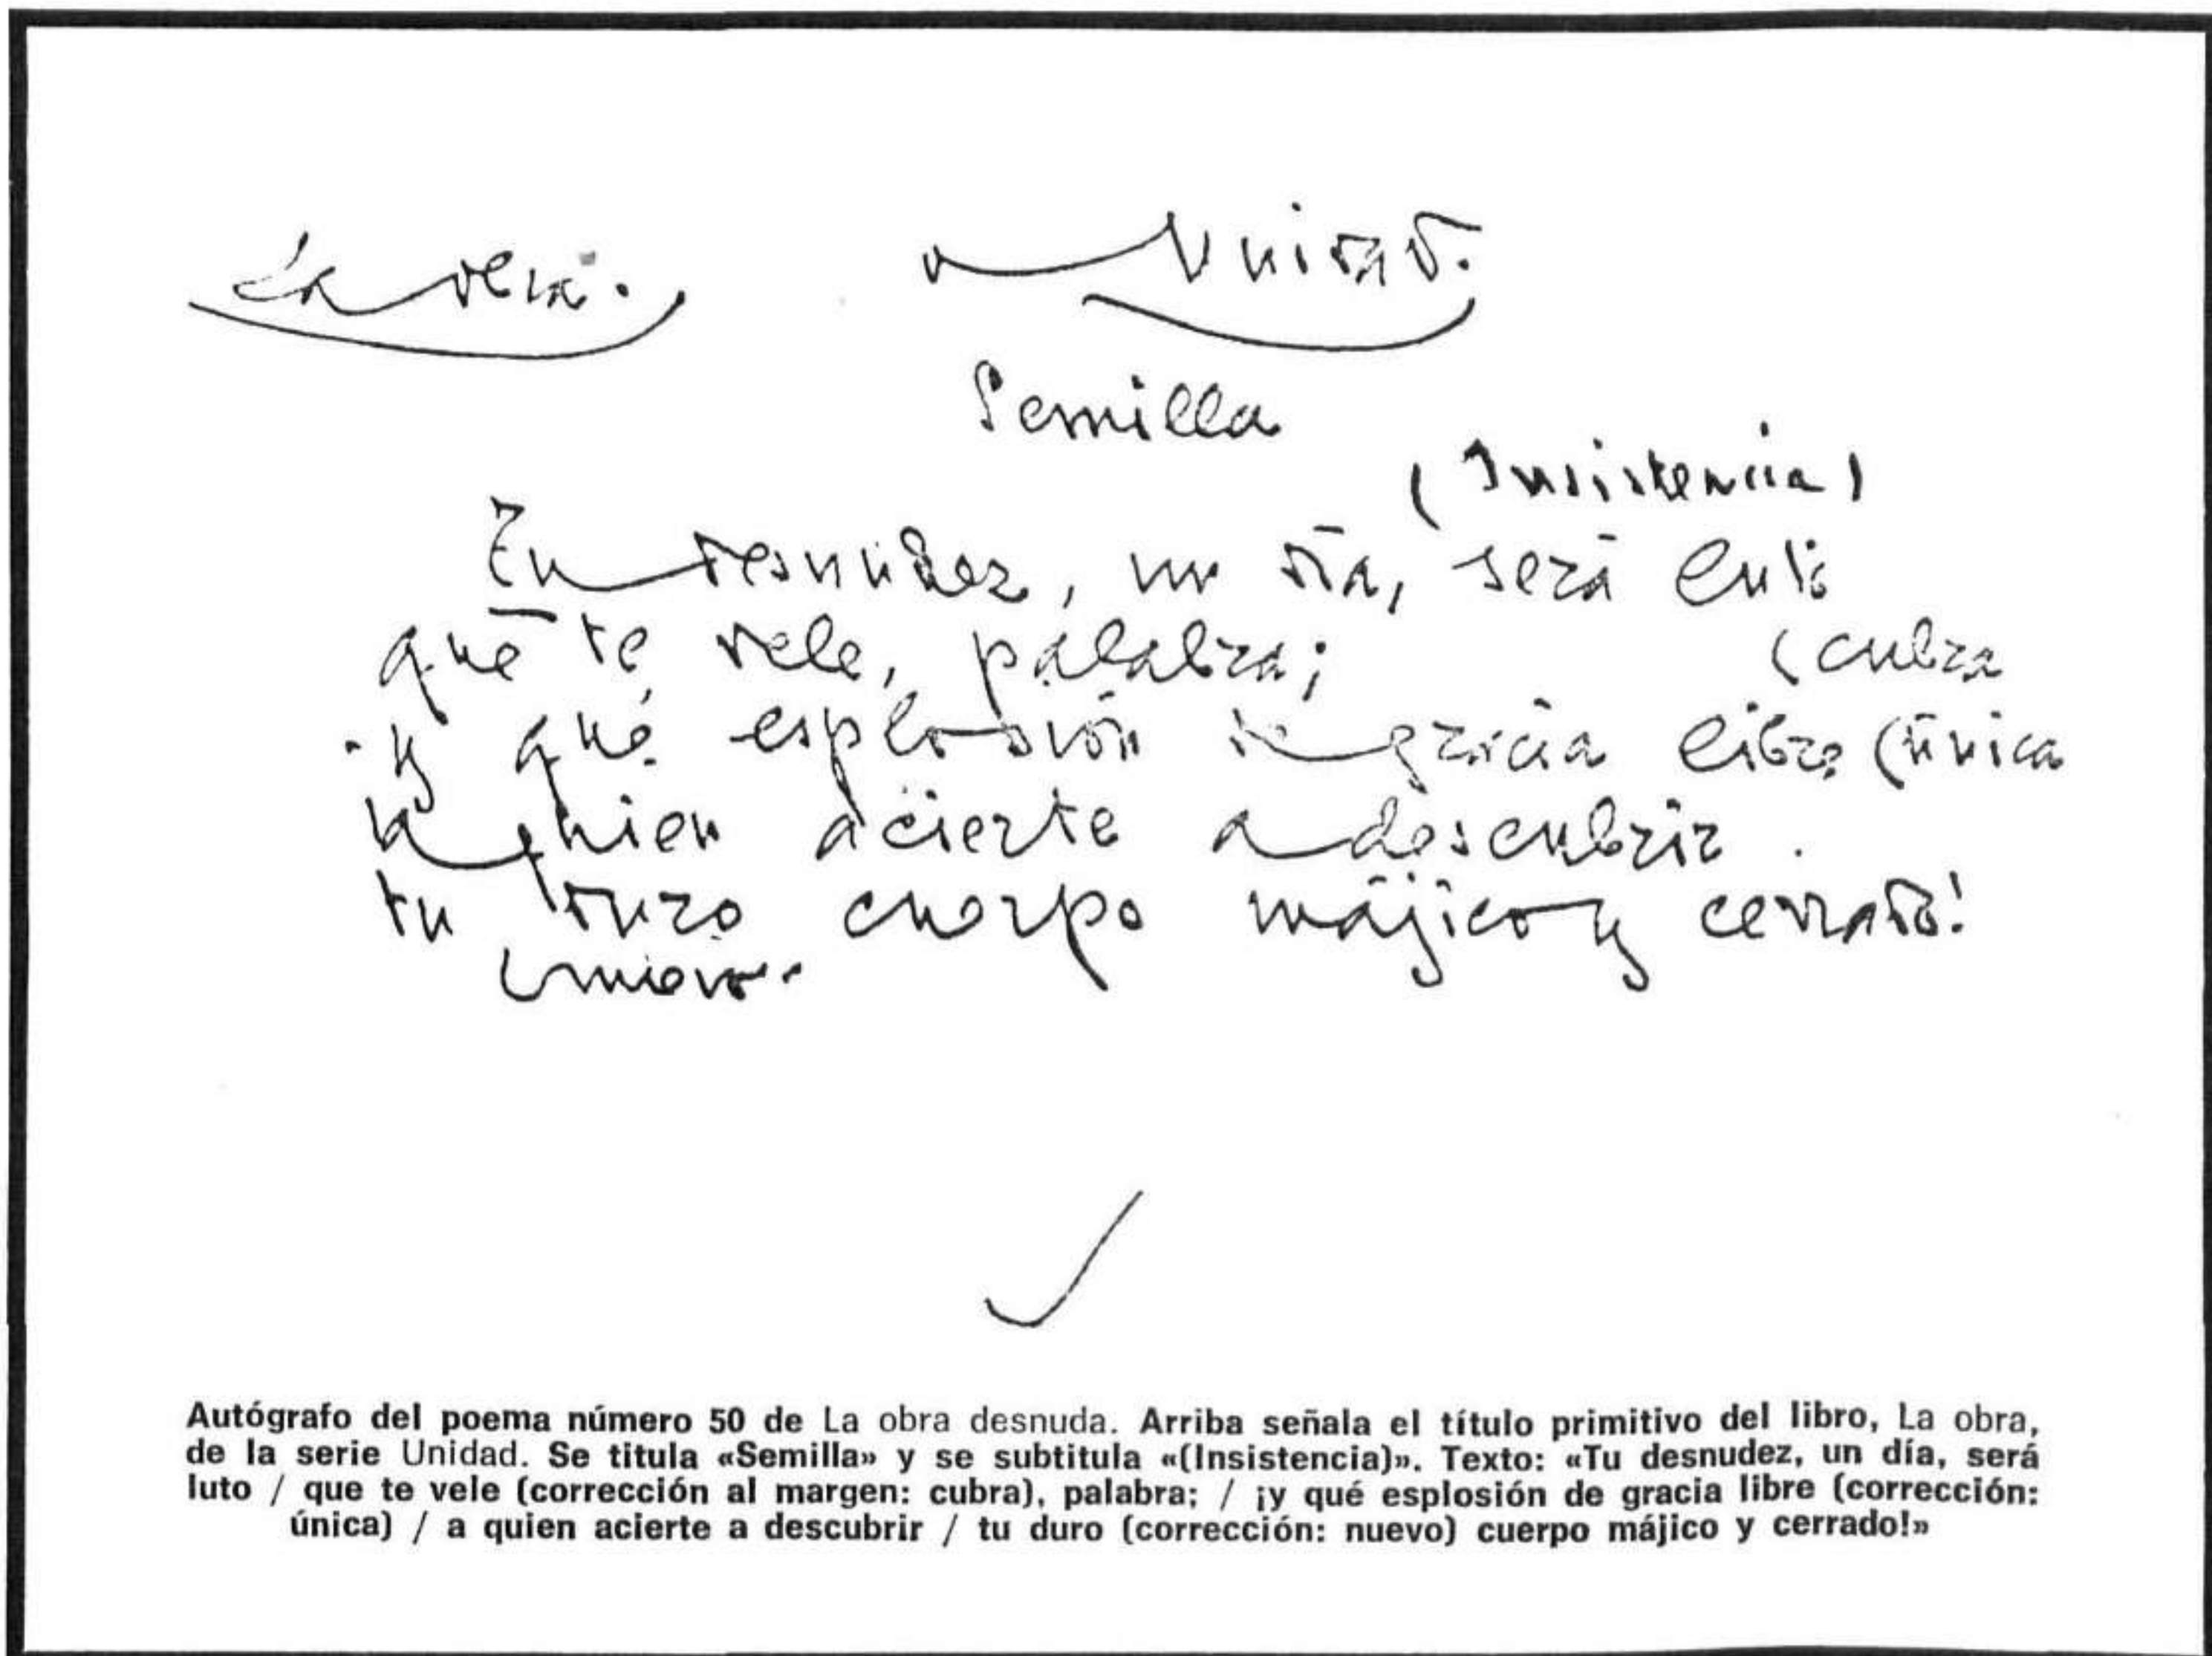 La obra.
Unidad.
Semilla
(Insistencia)
Tu desnudez, un día, será luto
que te vele, palabra; (cubra
¡y qué esplosión de gracia libre (única
a quien acierte a descubrir
tu duro cuerpo májico y cerrado!
(nuevo
Autógrafo del poema número 50 de La obra desnuda. Arriba señala el título primitivo del libro, La obra,
de la serie Unidad. Se titula «Semilla» y se subtitula «(Insistencia)». Texto: «Tu desnudez, un día, será
luto / que te vele (corrección al margen: cubra), palabra; / ¡y qué esplosión de gracia libre (corrección:
única) / a quien acierte a descubrir / tu duro (corrección: nuevo) cuerpo májico y cerrado!»